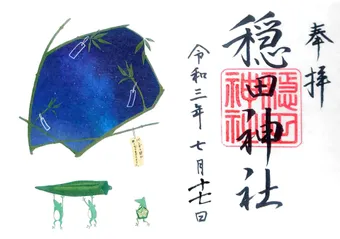 奉拝
穏田神社
穏田
神社
令和三年七月十七日